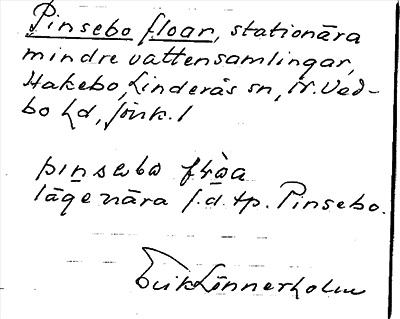 Pinsebo floar, stationära
mindre vattensamlingar,
Hakebo, Linderås sn, N. Ved-
bo hd, Jönk. l
pinsebo
läge nära f.d. tp. Pinsebo.
Erik Lönnerholm